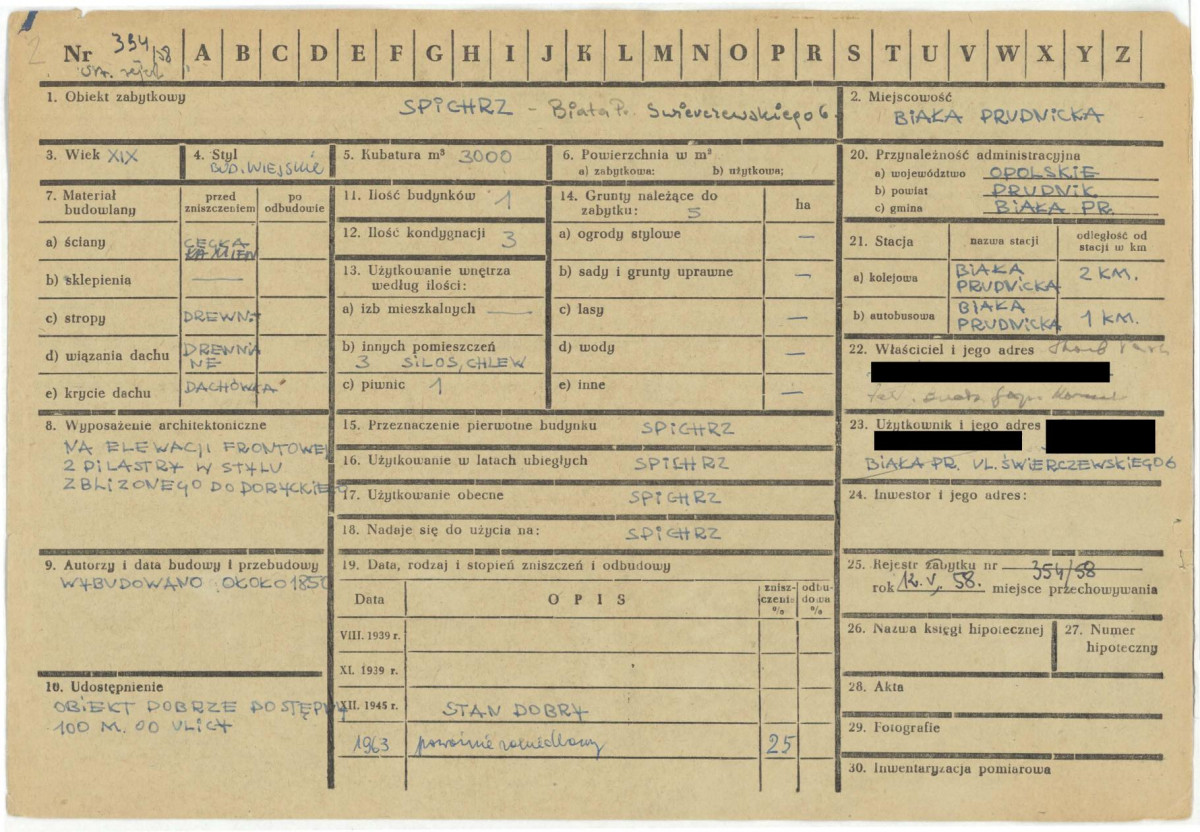 Nr 354/58 A B C D E F G H I J K L M N O P R S T U V W X Y Z
1. Obiekt zabytkowy
SPICHRZ – Biała Pr. Świerczewskiego 6.
2. Miejscowość
BIAŁA PRUDNICKA
3. Wiek XIX
4. Styl
BUD. WIEJSKIE
5. Kubatura m³ 3000
6. Powierzchnia w m²
a) zabytkowa: b) użytkowa;
20. Przynależność administracyjna
a) województwo OPOLSKIE
b) powiat PRUDNIK
c) gmina BIAŁA PR.
7. Materiał budowlany
przed zniszczeniem
po odbudowie
a) ściany CEGŁA KAMIEŃ
b) sklepienia —
c) stropy DREWN.
d) wiązania dachu DREWNIANE
e) krycie dachu DACHÓWKA
11. Ilość budynków 1
12. Ilość kondygnacji 3
13. Użytkowanie wnętrza
według ilości:
a) izb mieszkalnych —
b) innych pomieszczeń
3 SILOS, CHLEW
c) piwnic 1
14. Grunty należące do
zabytku: 5
ha
a) ogrody stylowe —
b) sady i grunty uprawne —
c) lasy —
d) wody —
e) inne —
21. Stacja
nazwa stacji
odległość od
stacji w km
a) kolejowa BIAŁA PRUDNICKA 2 KM.
b) autobusowa BIAŁA PRUDNICKA 1 KM.
22. Właściciel i jego adres
23. Użytkownik i jego adres
BIAŁA PR. UL. ŚWIERCZEWSKIEGO 6
8. Wyposażenie architektoniczne
NA ELEWACJI FRONTOWEJ
2 PILASTRY W STYLU
ZBLIŻONEGO DO DORYCKIEGO
15. Przeznaczenie pierwotne budynku SPICHRZ
16. Użytkowanie w latach ubiegłych SPICHRZ
17. Użytkowanie obecne SPICHRZ
18. Nadaje się do użycia na: SPICHRZ
24. Inwestor i jego adres:
9. Autorzy i data budowy i przebudowy
WYBUDOWANO OKOŁO 1850
19. Data, rodzaj i stopień zniszczeń i odbudowy
Data
OPIS
zniszczenia %
odbudowa %
VIII. 1939 r.
XI. 1939 r.
XII. 1945 r. STAN DOBRY
1963 25
25. Rejestr zabytku nr 354/58
rok 12. V. 58. miejsce przechowywania
26. Nazwa księgi hipotecznej
27. Numer
hipoteczny
10. Udostępnienie
OBIEKT DOBRZE DOSTĘPNY
100 M. OD ULICY
28. Akta
29. Fotografie
30. Inwentaryzacja pomiarowa